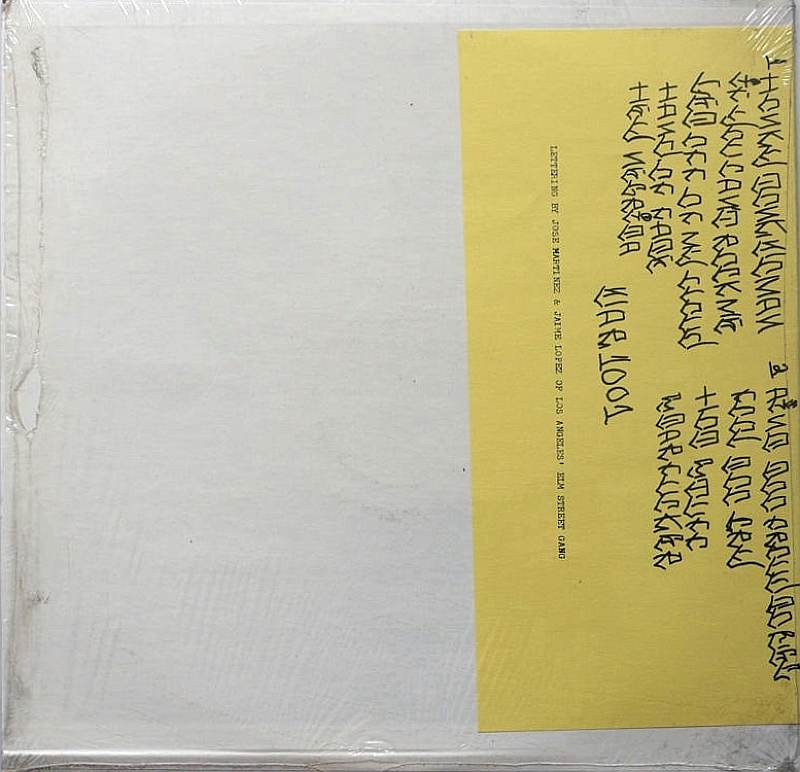 1 HONKY TONK WOMAN
IF YOU CANT ROCK ME
GET OFF OF MY CLOUD
HAND OF FATE
HEY NEGRITA
2 AINT TOO PROUD TO BEG
FOOL TO CRY
HOT STUFF
STARFUCKER
1001
LETTERING BY JOSE MARTINEZ & JAIME LOPEZ OF LOS ANGELES' ELM STREET GANG